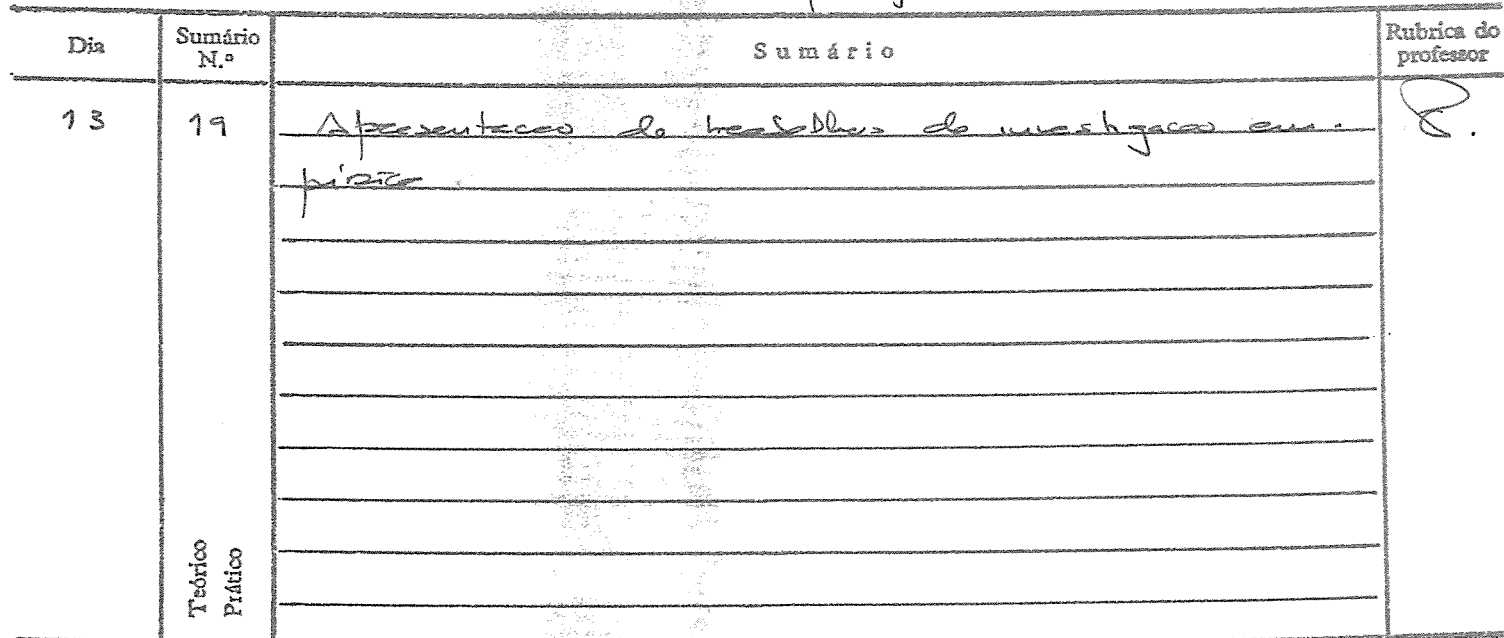 Dia
Sumário N.º
Sumário
Rubrica do professor
13
19
Apresentacao de trabalhos de investigacao em-
pírica.
Teórico
Prático